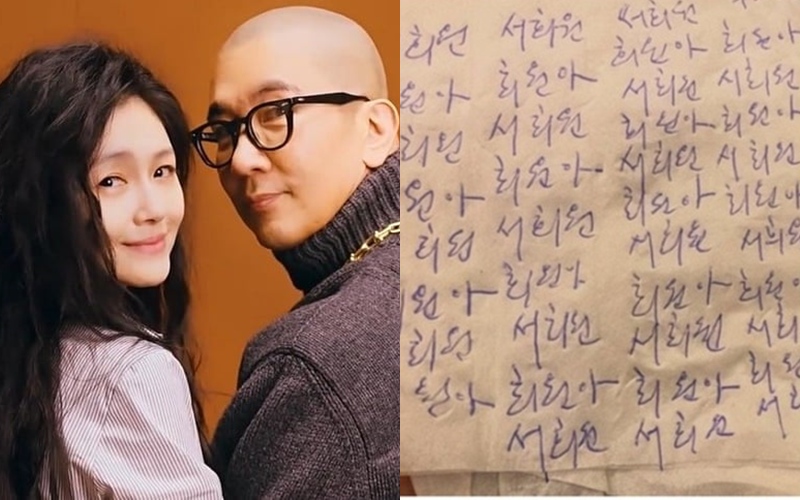 희원 서희원 서희원
원아 희원아 희원아 희원아
희원 서희원 서희원 서희원
원아 희원아 희원아 희원아
희원 서희원 서희원 서희원
원아 희원아 희원아 희원아
희원 서희원 서희원 서희원
원아 희원아 희원아 희원
서희원 서희원 서희
희원아 희원
서희원 서희